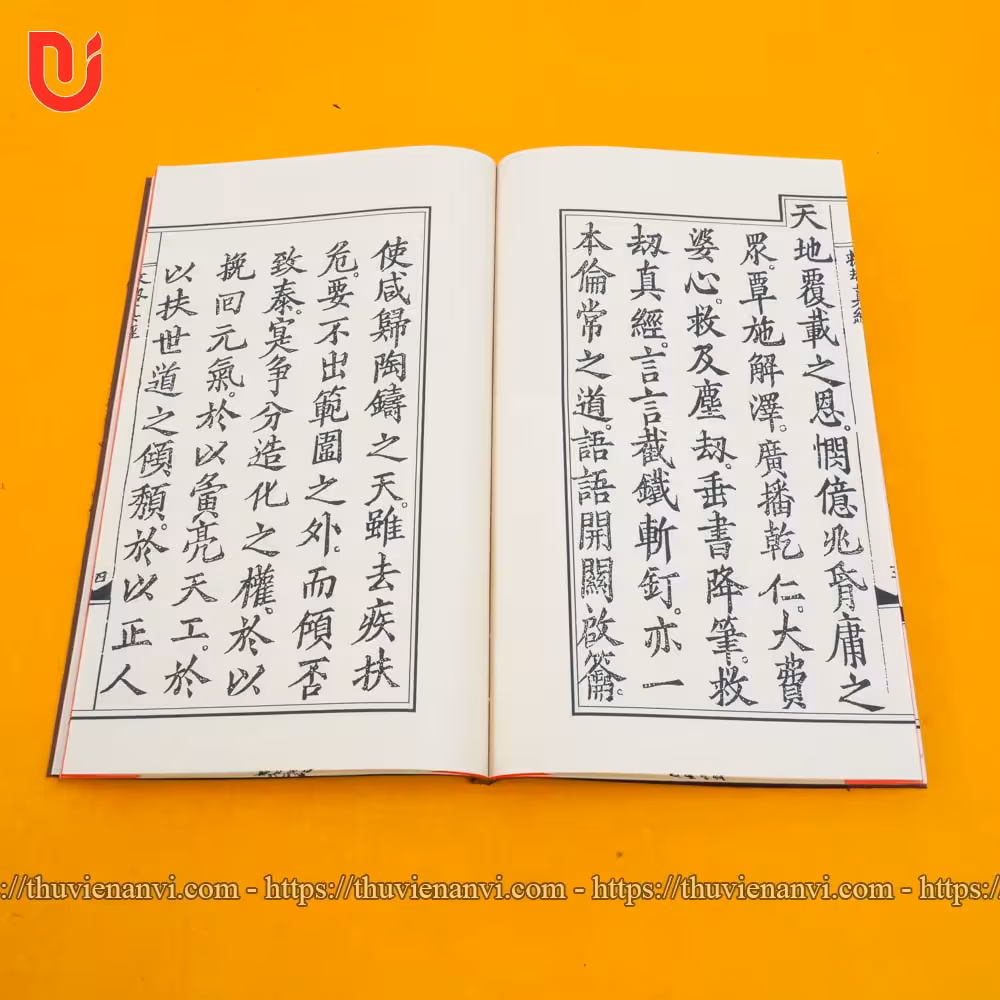 天地覆載之恩。憫億兆胥庸之
眾。覃施解澤。廣播乾仁。大費
婆心。救及塵劫。垂書降筆。救
劫真經。言言截鐵斬釘。亦一
本倫常之道。語語開關啟籥。
使咸歸陶鑄之天。雖去疾扶
危。要不出範圍之外。而傾否
致泰。寔爭分造化之權。於以
挽回元氣。於以寅亮天工。於
以扶世道之傾頹。於以正人
四
https://thuvienanvi.com - https://thuvienanvi.com - https://thuvienanvi.com - https:/